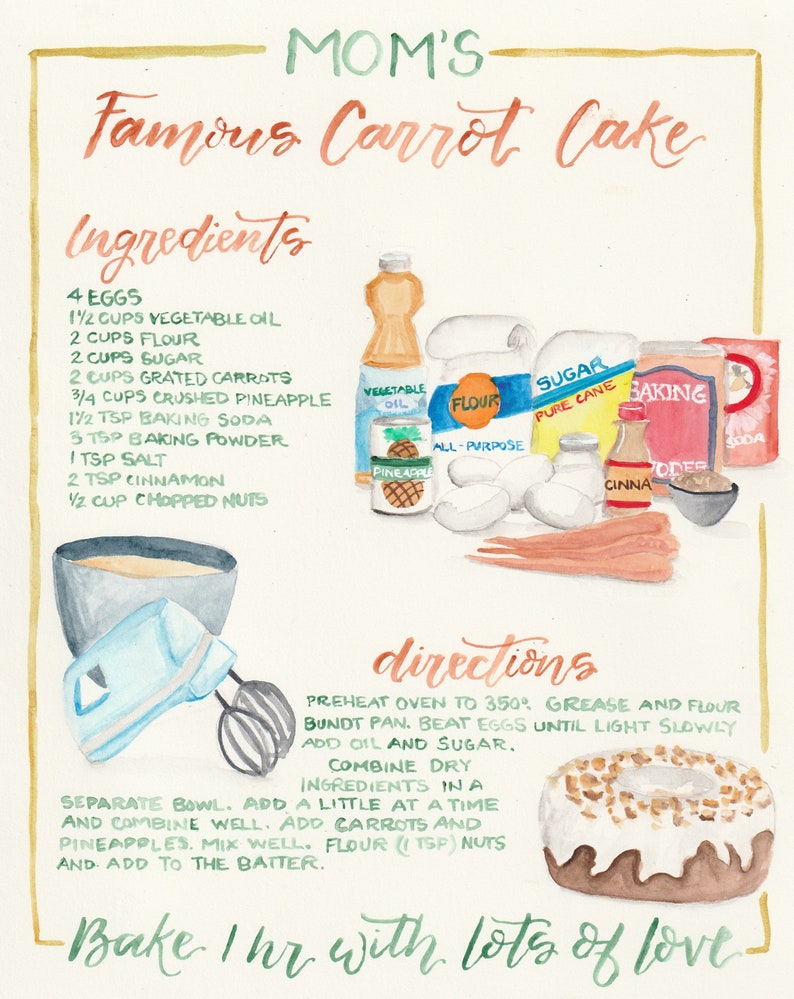 MOM'S
Famous Carrot Cake
Ingredients
4 EGGS
1 1/2 CUPS VEGETABLE OIL
2 CUPS FLOUR
2 CUPS SUGAR
2 CUPS GRATED CARROTS
3/4 CUPS CRUSHED PINEAPPLE
1 1/2 TSP BAKING SODA
3 TSP BAKING POWDER
1 TSP SALT
2 TSP CINNAMON
1/2 CUP CHOPPED NUTS
VEGETABLE
OIL
FLOUR
ALL-PURPOSE
SUGAR
PURE CANE
BAKING
POWDER
SODA
PINEAPPLE
CINNA
directions
PREHEAT OVEN TO 350°. GREASE AND FLOUR
BUNDT PAN. BEAT EGGS UNTIL LIGHT SLOWLY
ADD OIL AND SUGAR.
COMBINE DRY
INGREDIENTS IN A
SEPARATE BOWL. ADD A LITTLE AT A TIME
AND COMBINE WELL. ADD CARROTS AND
PINEAPPLES. MIX WELL. FLOUR (1 TSP) NUTS
AND ADD TO THE BATTER.
Bake 1 hr with lots of love